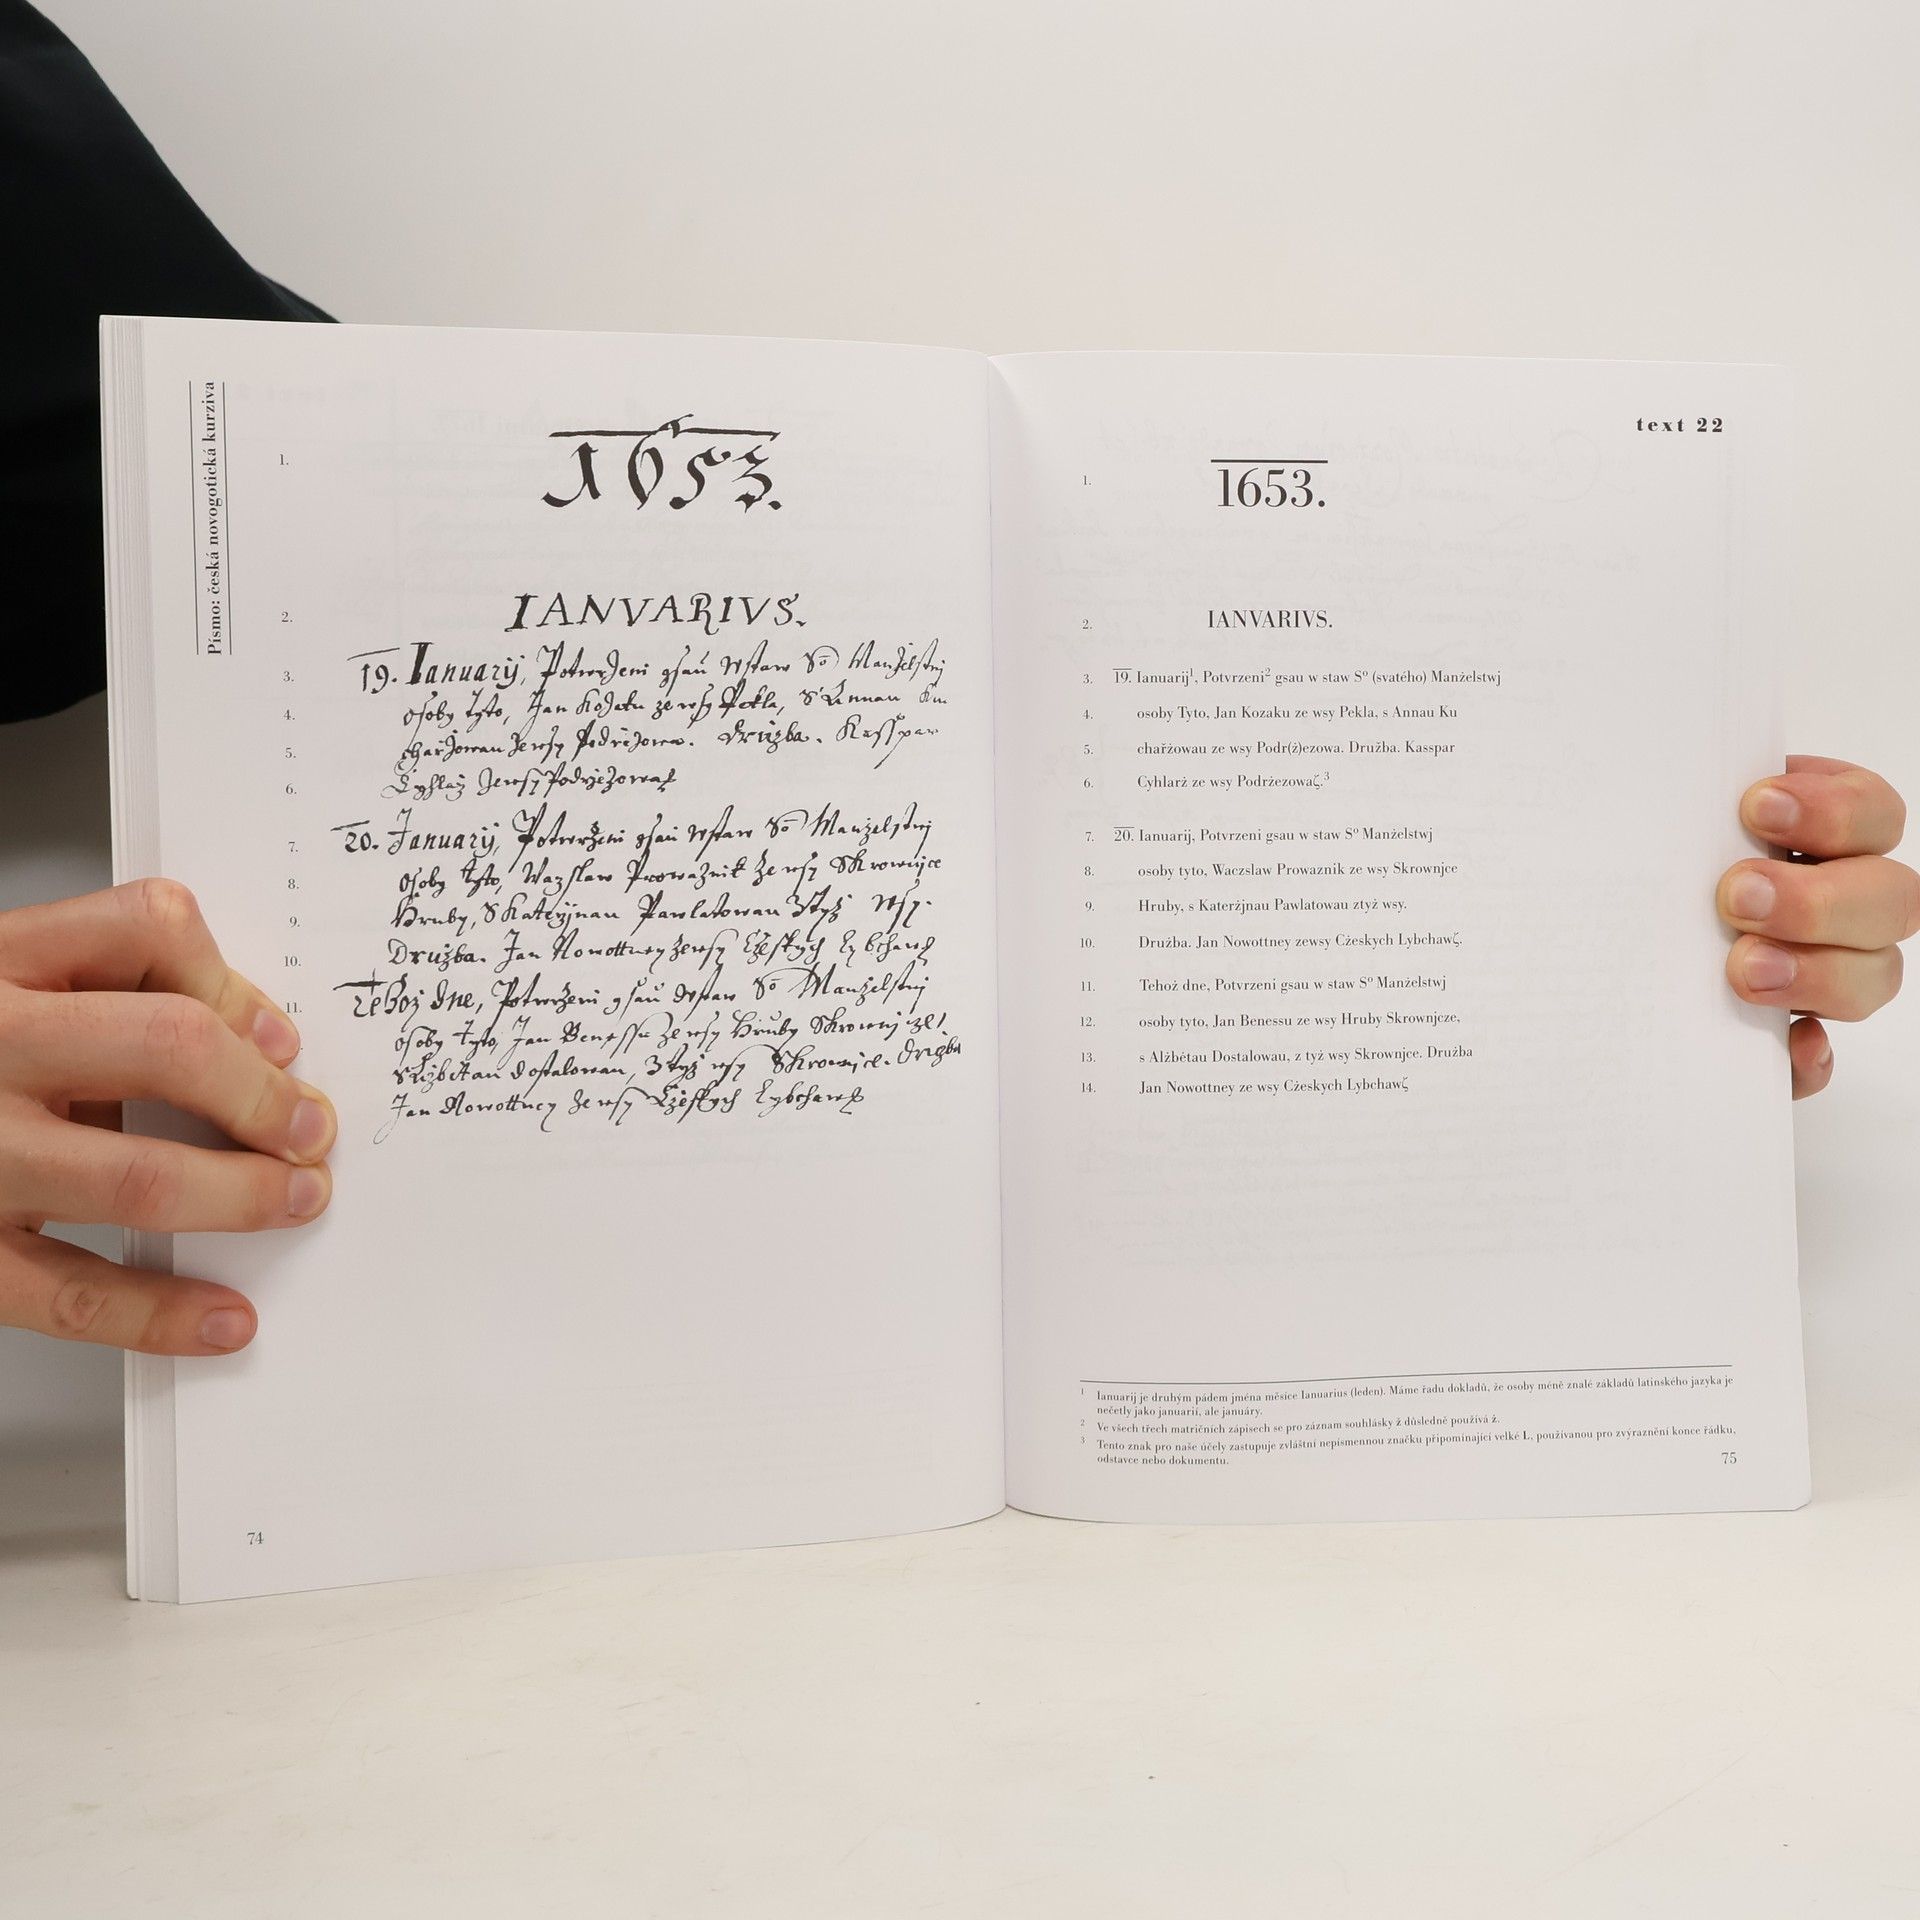 Písmo: česká novogotická kurziva
1. 1653.
2. IANVARIVS.
3. 19. Ianuarij, Potwrzeni gsau wstaw So Manżelstwj
4. osoby tyto, Jan Kozaku ze wsy Pekla, S Annau Ku
5. charżowau ze wsy Podrżezowa. Drużba. Kasspar
6. Cyhlarż ze wsy Podrżezowaζ
7. 20. Januarij, Potwrzeni gsau wstaw So Manżelstwj
8. osoby tyto, Waczslaw Prowaznik ze wsy Skrownjce
9. Hruby, S Katerżjnau Pawlatowau ztyż wsy.
10. Drużba. Jan Nowottney zewsy Cżeskych Lybchawζ
11. Tehoż dne, Potwrzeni gsau wstaw So Manżelstwj
osoby tyto, Jan Benessu ze wsy Hruby Skrownjcze,
s Alżbětau Dostalowau, z tyż wsy Skrownjce. Drużba
Jan Nowottney ze wsy Cżeskych Lybchawζ
74
text 22
1. 1653.
2. IANVARIVS.
3. 19. Ianuarij¹, Potvrzeni² gsau w staw Sº (svatého) Manżelstwj
4. osoby Tyto, Jan Kozaku ze wsy Pekla, s Annau Ku
5. chařżowau ze wsy Podr(ż)ezowa. Družba. Kasspar
6. Cyhlarż ze wsy Podrżezowaζ.³
7. 20. Ianuarij, Potvrzeni gsau w staw Sº Manżelstwj
8. osoby tyto, Waczslaw Prowaznik ze wsy Skrownjce
9. Hruby, s Kateržjnau Pawlatowau ztyż wsy.
10. Družba. Jan Nowottney zewsy Cżeskych Lybchawζ.
11. Tehoż dne, Potvrzeni gsau w staw Sº Manżelstwj
12. osoby tyto, Jan Benessu ze wsy Hruby Skrownjcze,
13. s Alżbétau Dostalowau, z tyż wsy Skrownjce. Družba
14. Jan Nowottney ze wsy Cżeskych Lybchawζ
1 Ianuarij je druhým pádem jména měsíce Ianuarius (leden). Máme řadu dokladů, že osoby méně znalé základů latinského jazyka je
nečetly jako januarií, ale januáry.
2 Ve všech třech matričních zápisech se pro záznam souhlásky ž důsledně používá ż.
3 Tento znak pro naše účely zastupuje zvláštní nepísmennou značku připomínající velké L, používanou pro zvýraznění konce řádku,
odstavce nebo dokumentu.
75